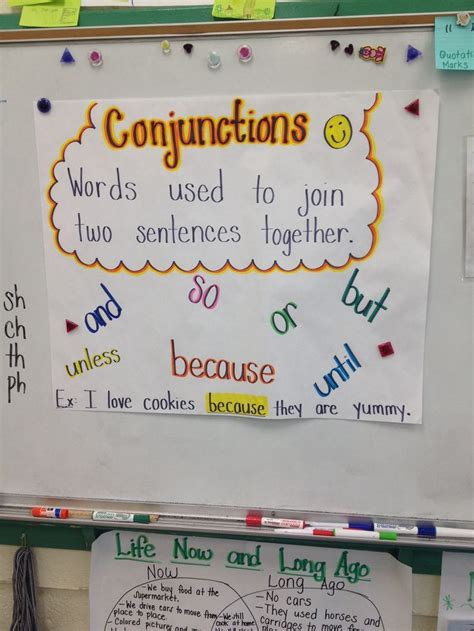 "     "
Quotati
Marks
Conjunctions
Words used to join
two sentences together.
and so or but
unless because until
Ex: I love cookies because they are yummy.
sh
ch
th
ph
Life Now and Long Ago
Now
- We buy food at the
supermarket.
- We drive cars to move from
place to place.
- Colored pictures and
- We still
look at
home
Long Ago
- No cars
- They used horses and
carriages to move from
place to place.